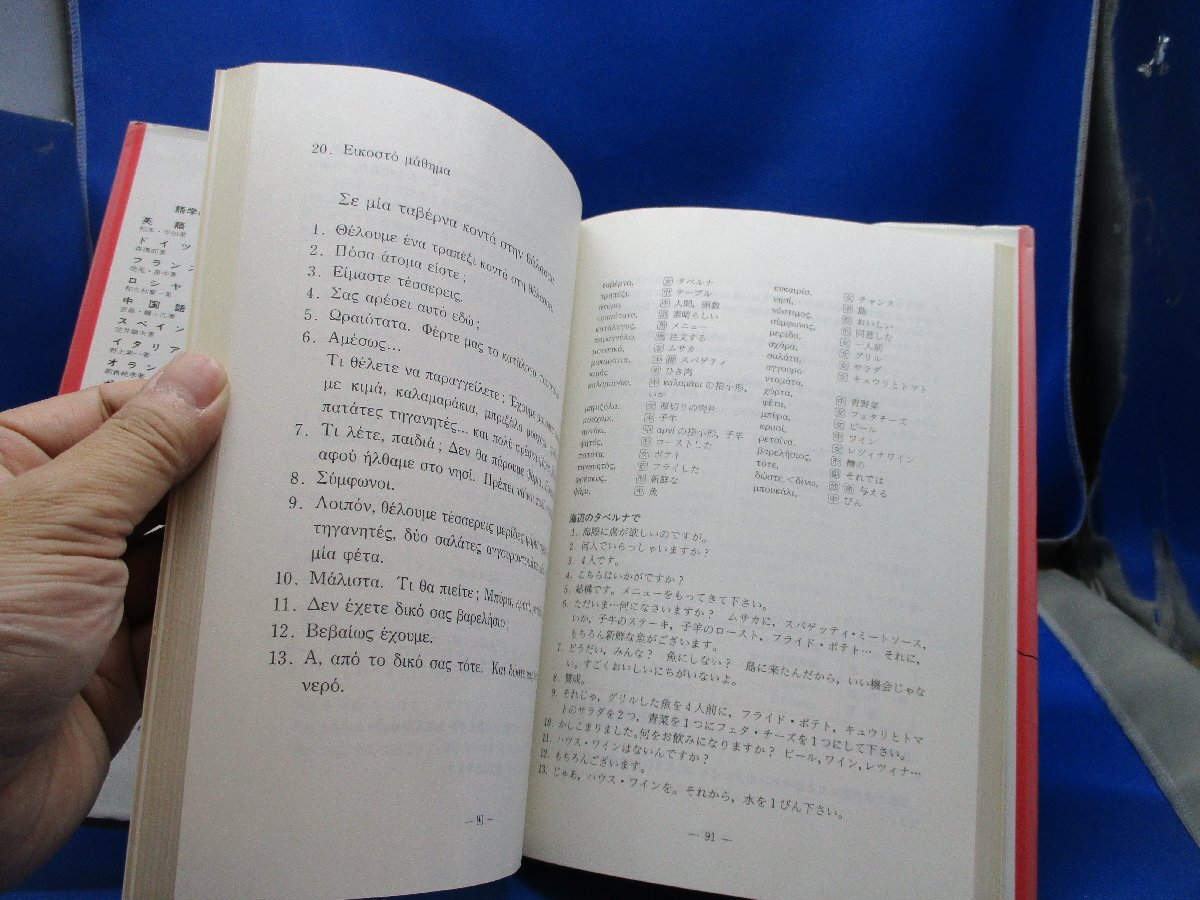 語学
英語
ドイツ
フランス
ロシヤ
中国語
スペイン
イタリア
オラン
20. Εικοστό μάθημα
Σε μία ταβέρνα κοντά στην θάλασσα
1. Θέλουμε ένα τραπέζι κοντά στη θάλασσα.
2. Πόσα άτομα είστε;
3. Είμαστε τέσσερεις.
4. Σας αρέσει αυτό εδώ;
5. Ωραιότατα. Φέρτε μας το κατάλογο
6. Αμέσως...
Τι θέλετε να παραγγείλετε; Έχουμε
με κιμά, καλαμαράκια, μπριζόλα
πατάτες τηγανητές... και πολύ
7. Τι λέτε, παιδιά; Δεν θα πάρουμε
αφού ήλθαμε στο νησί. Πρέπει
8. Σύμφωνοι.
9. Λοιπόν, θέλουμε τέσσερεις μερίδες
τηγανητές, δύο σαλάτες
μία φέτα.
10. Μάλιστα. Τι θα πιείτε; Μπύρα,
11. Δεν έχετε δικό σας βαρελήσιο;
12. Βεβαίως έχουμε.
13. Α, από το δικό σας τότε. Και
νερό.
— 91 —
ταβέρνα, 女 タベルナ
τραπέζι, 中 テーブル
άτομο, 中 人間，頭数
ωραιότατα, 素晴らしい
κατάλογος, 男 メニュー
παραγγέλω, 動 注文する
μουσακά, ムサカ
μακαρόνια, スパゲティ
κιμάς, ひき肉
καλαμαράκι, 中 καλαμάρι の指小形,
いか
μπριζόλα, 女 厚切りの肉片
μοσχάρι, 中 子牛
αρνάκι, 中 αρνί の指小形, 子羊
ψητός, 形 ローストした
πατάτα, 女 ポテト
τηγανητός, 形 フライした
φρέσκος, 形 新鮮な
ψάρι, 中 魚
ευκαιρία, 女 チャンス
νησί, 中 島
νόστιμος, 形 おいしい
σύμφωνος, 形 同意した
μερίδα, 女 一人前
σχάρα, 女 グリル
σαλάτα, 女 サラダ
αγγουρο-
ντομάτα, 女 キュウリとトマト
χόρτα, 中 青野菜
φέτα, 女 フェタチーズ
μπύρα, 女 ビール
κρασί, 中 ワイン
ρετσίνα, 女 レツィナワイン
βαρελήσιος, 形 樽の
τότε, 副 それでは
δώστε,<δίνω, 与える
μπουκάλι, 中 びん
海辺のタベルナで
1. 海際に席が欲しいのですが。
2. 何人でいらっしゃいますか？
3. 4人です。
4. こちらはいかがですか？
5. 結構です。メニューをもってきて下さい。
6. ただいま…何になさいますか？ ムサカに，スパゲッティ・ミートソース，
いか，子牛のステーキ，子羊のロースト，フライド・ポテト… それに，
もちろん新鮮な魚がございます。
7. どうだい，みんな？ 魚にしない？ 島に来たんだから，いい機会じゃな
い。すごくおいしいにちがいないよ。
8. 賛成。
9. それじゃ，グリルした魚を4人前に，フライド・ポテト，キュウリとトマ
トのサラダを2つ，青菜を1つにフェタ・チーズを1つにして下さい。
10. かしこまりました。何をお飲みになりますか？ ビール，ワイン，レツィナ…
11. ハウス・ワインはないんですか？
12. もちろんございます。
13. じゃあ，ハウス・ワインを。それから，水を1びん下さい。
— 91 —